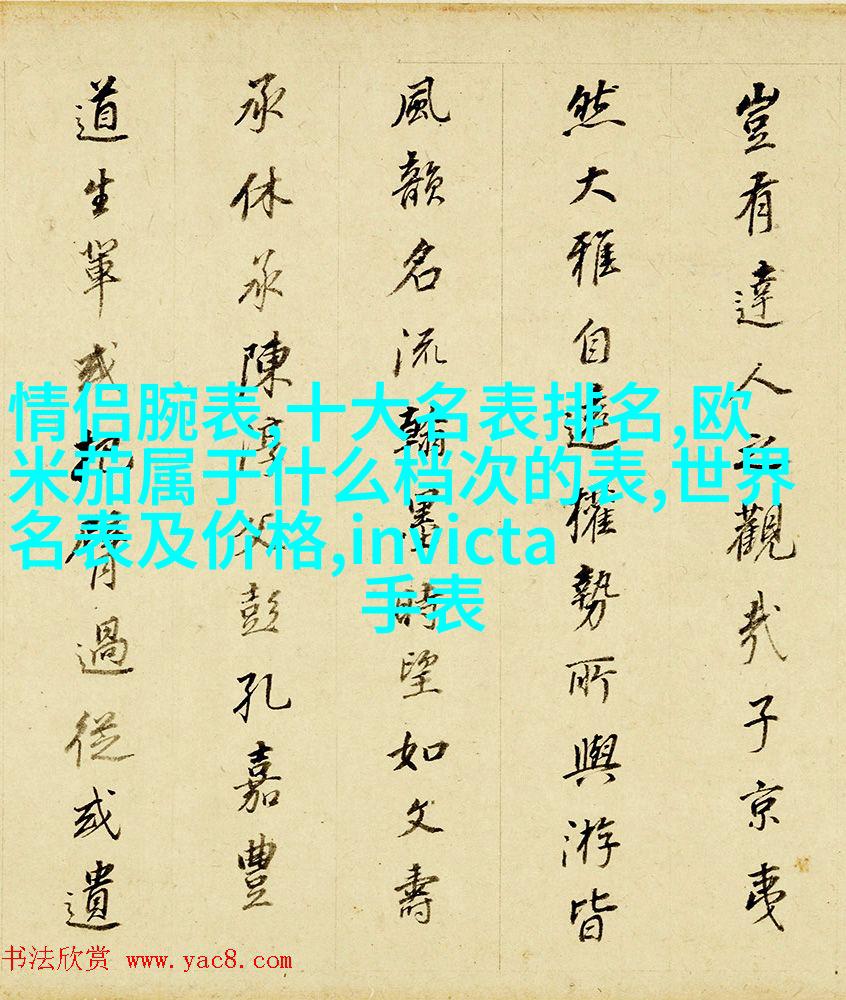 豈有達人之觀哉子京夷
然大雅自遠權勢所與游皆
風韻名流翰墨時望如文壽
承休承陳淳父彭孔嘉豊
道生軰或把臂過從或遺
情侣腕表,十大名表排名,欧
米茄属于什么档次的表,世界
名表及价格,invicta
手表
书法欣赏 www.yac8.com